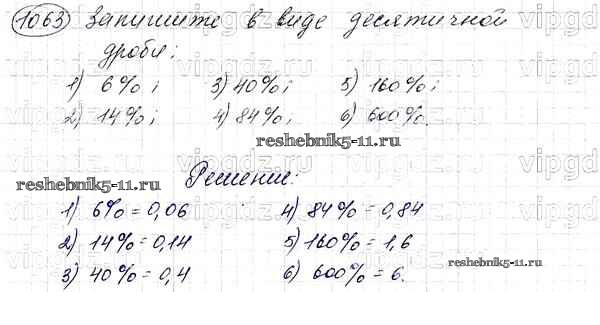 1063) Запишите в виде десятичной
дроби:
1) 6%; 3) 40%; 5) 160%;
2) 14%; 4) 84%; 6) 600%.
reshebnik5-11.ru
Решение:
reshebnik5-11.ru
1) 6% = 0,06 4) 84% = 0,84
2) 14% = 0,14 5) 160% = 1,6
3) 40% = 0,4 6) 600% = 6.
reshebnik5-11.ru